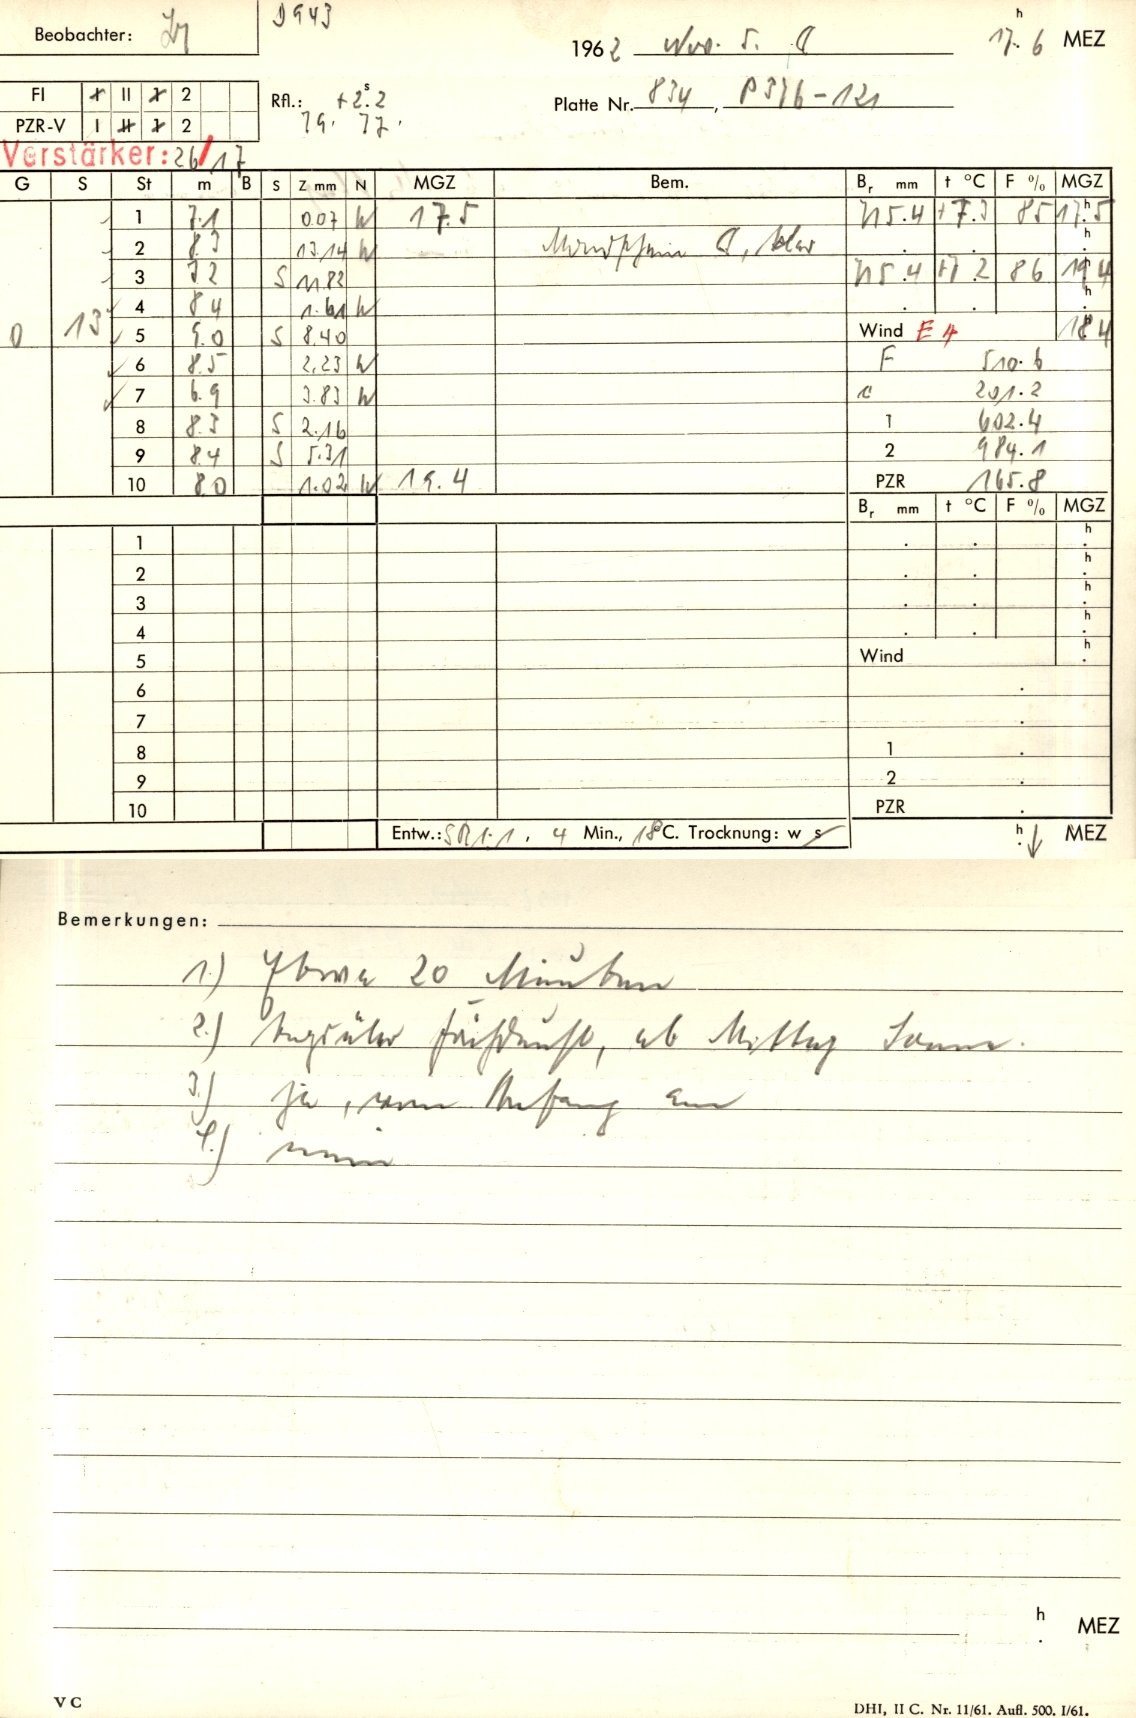 Beobachter:
D943
1962 Nov. 5.
17.h6 MEZ
FI I II 1 2
PZR-V I II 1 2
Rfl.: +2.s2
79. 77.
Platte Nr. 834, P376-121
Verstärker: 26/17
G S St m B S Z mm N MGZ Bem. Br mm t °C F % MGZ
1 7.1 0.07 W 17.5 715.4 +7.3 85 17.h5
2 8.3 13.14 W Mondschein , klar . . h.
3 7.2 S 11.82 715.4 +7.2 86 19.h4
4 8.4 1.61 W . . h.
0 13 5 9.0 S 8.40 Wind E 4 18.h4
6 8.5 2.23 W F 510.6
7 6.9 3.83 W c 201.2
8 8.3 S 2.16 1 602.4
9 8.4 S 5.31 2 984.1
10 8.0 1.02 W 19.4 PZR 165.8
Br mm t °C F % MGZ
1 . . h.
2 . . h.
3 . . h.
4 . . h.
5 Wind h.
6 .
7 .
8 1 .
9 2 .
10 PZR .
Entw.: SR1:1, 4 Min., 18°C. Trocknung: w s
h. MEZ
Bemerkungen:
1.) Etwa 20 Minuten
2.) tagsüber Frühdunst, ab Mittag Sonne.
3.) ja, von Anfang an
4.) nein
h. MEZ
V C
DHI, II C. Nr. 11/61. Aufl. 500. I/61.